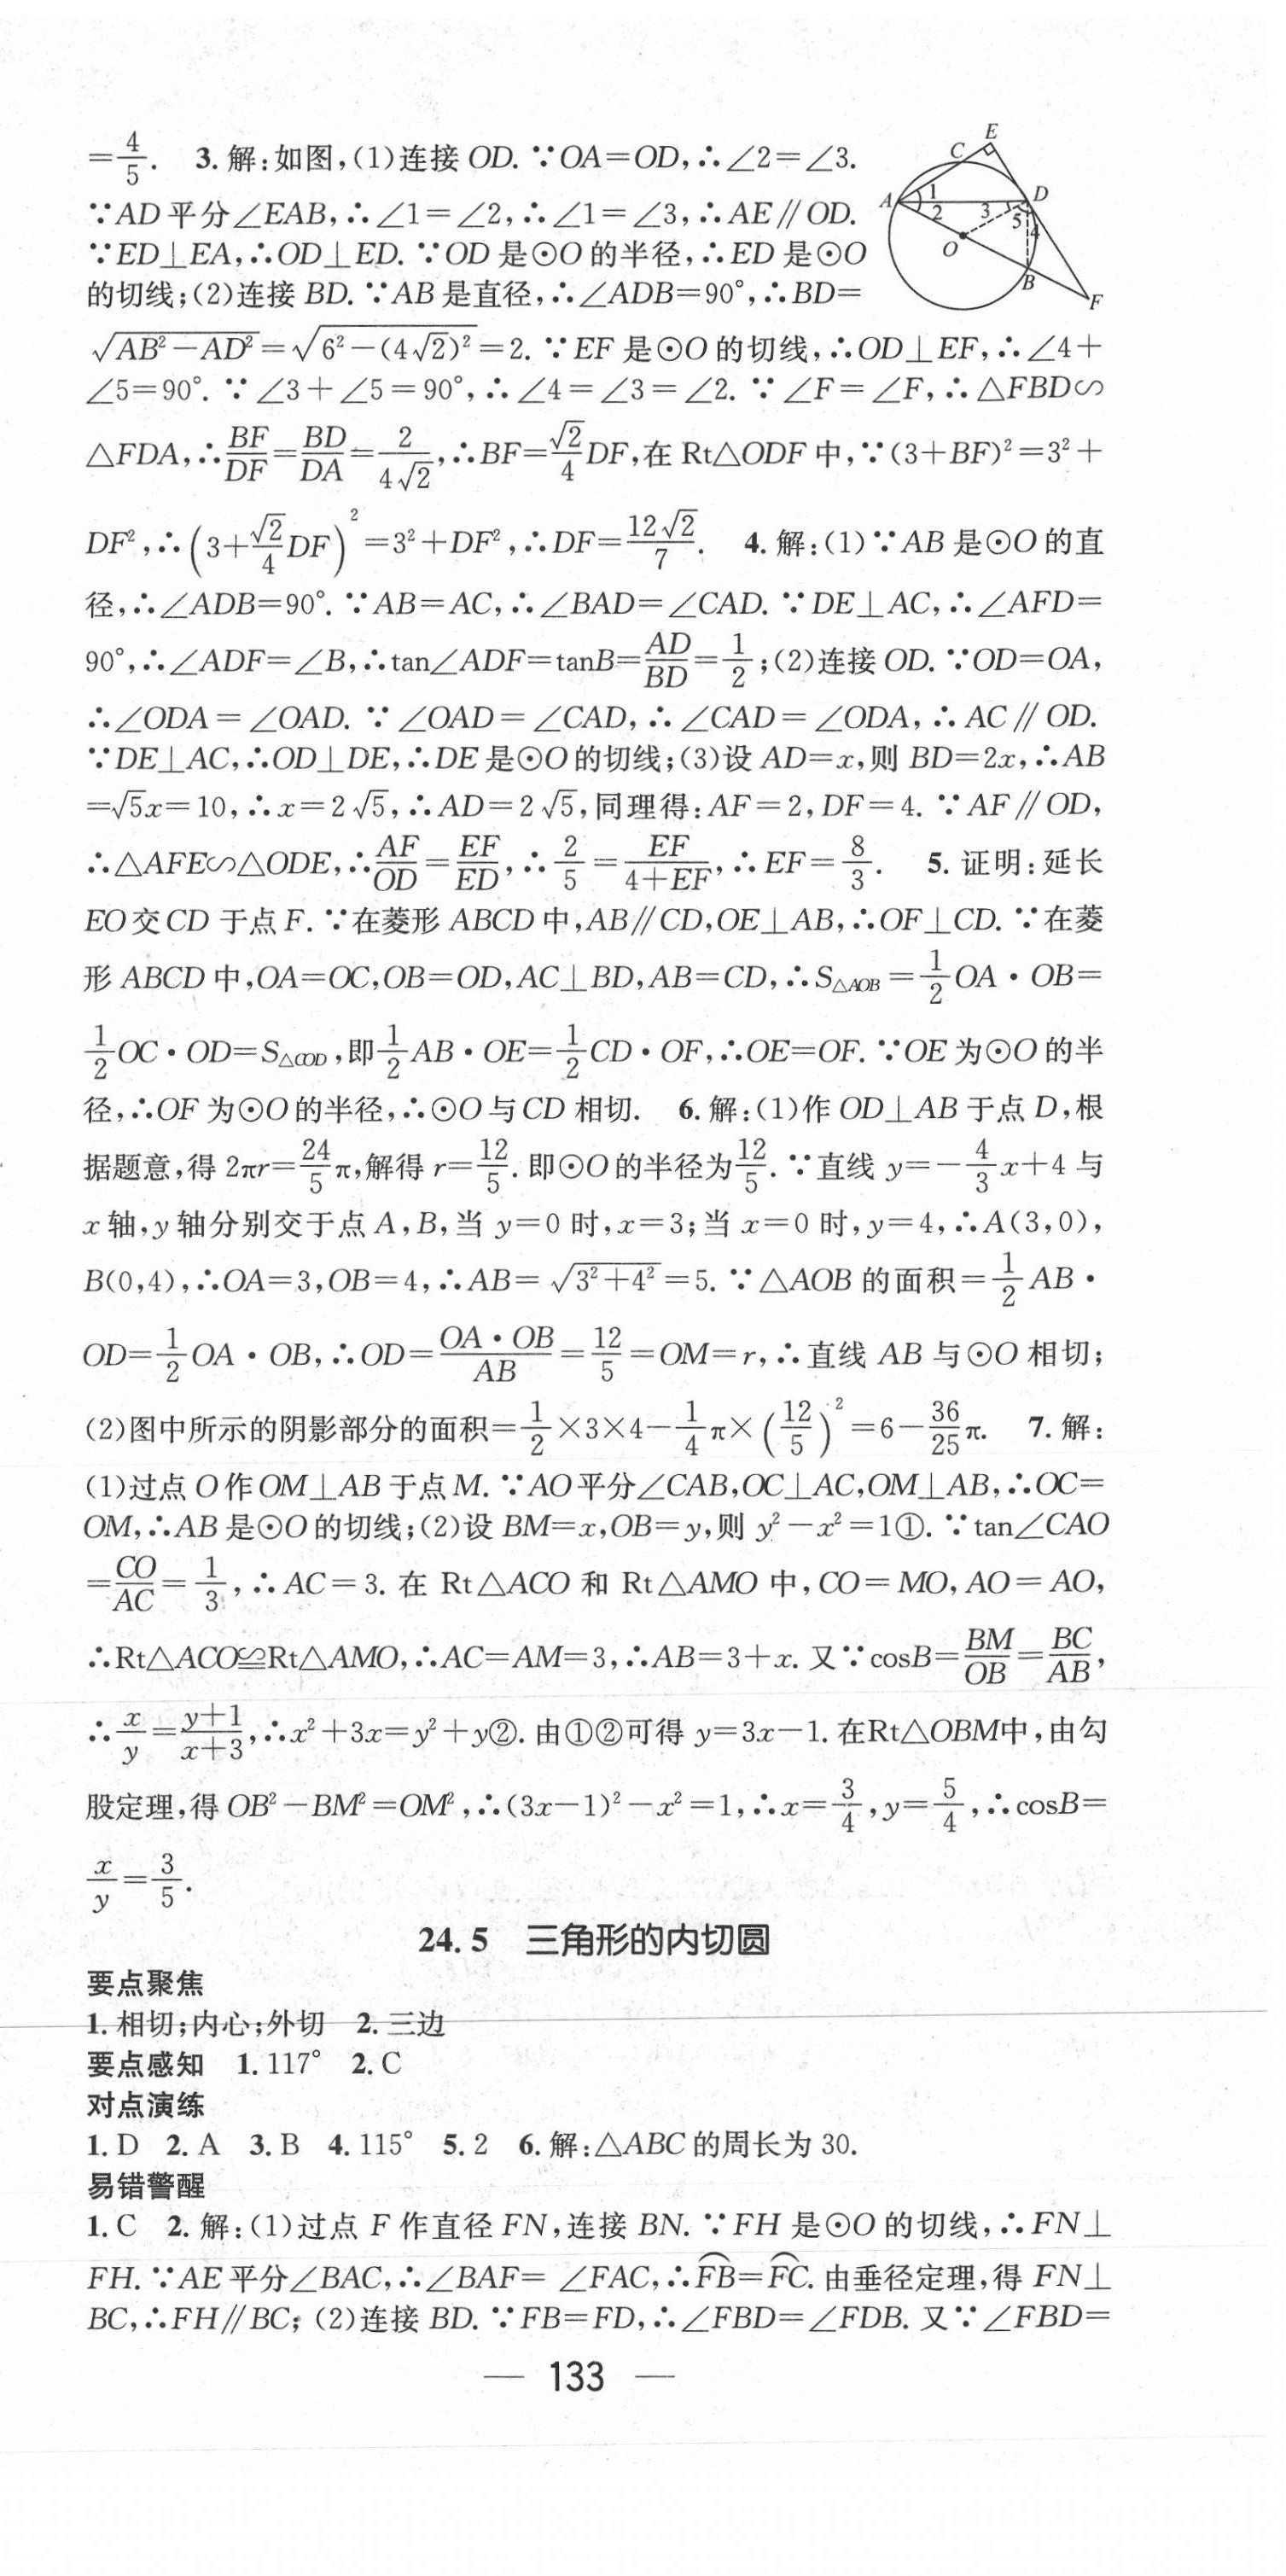 =4/5. 3.解:如图,(1)连接 OD. ∵OA=OD,∴∠2=∠3.
∵AD 平分∠EAB,∴∠1=∠2,∴∠1=∠3,∴AE∥OD.
∵ED⊥EA,∴OD⊥ED. ∵OD 是⊙O 的半径,∴ED 是⊙O
的切线;(2)连接 BD. ∵AB 是直径,∴∠ADB=90°,∴BD=
E
C
A
1
2
3
D
5
4
O
B
F
√(AB²-AD²)=√(6²-(4√2)²)=2. ∵EF 是⊙O 的切线,∴OD⊥EF,∴∠4+
∠5=90°. ∵∠3+∠5=90°,∴∠4=∠3=∠2. ∵∠F=∠F,∴△FBD∽
△FDA,∴BF/DF=BD/DA=2/(4√2),∴BF=(√2/4)DF,在 Rt△ODF 中,∵(3+BF)²=3²+
DF²,∴(3+(√2/4)DF)²=3²+DF²,∴DF=12√2/7. 4.解:(1)∵AB 是⊙O 的直
径,∴∠ADB=90°. ∵AB=AC,∴∠BAD=∠CAD. ∵DE⊥AC,∴∠AFD=
90°,∴∠ADF=∠B,∴tan∠ADF=tanB=AD/BD=1/2;(2)连接 OD. ∵OD=OA,
∴∠ODA=∠OAD. ∵∠OAD=∠CAD,∴∠CAD=∠ODA,∴AC∥OD.
∵DE⊥AC,∴OD⊥DE,∴DE 是⊙O 的切线;(3)设 AD=x,则 BD=2x,∴AB
=√5x=10,∴x=2√5,∴AD=2√5,同理得:AF=2,DF=4. ∵AF∥OD,
∴△AFE∽△ODE,∴AF/OD=EF/ED,∴2/5=EF/(4+EF),∴EF=8/3. 5.证明:延长
EO 交 CD 于点 F. ∵在菱形 ABCD 中,AB∥CD,OE⊥AB,∴OF⊥CD. ∵在菱
形 ABCD 中,OA=OC,OB=OD,AC⊥BD,AB=CD,∴S△AOB=1/2 OA·OB=
1/2 OC·OD=S△COD,即1/2 AB·OE=1/2 CD·OF,∴OE=OF. ∵OE 为⊙O 的半
径,∴OF 为⊙O 的半径,∴⊙O 与 CD 相切. 6.解:(1)作 OD⊥AB 于点 D,根
据题意,得 2πr=24/5 π,解得 r=12/5. 即⊙O 的半径为12/5. ∵直线 y=-4/3 x+4 与
x 轴,y 轴分别交于点 A,B,当 y=0 时,x=3;当 x=0 时,y=4,∴A(3,0),
B(0,4),∴OA=3,OB=4,∴AB=√(3²+4²)=5. ∵△AOB 的面积=1/2 AB·
OD=1/2 OA·OB,∴OD=OA·OB/AB=12/5=OM=r,∴直线 AB 与⊙O 相切;
(2)图中所示的阴影部分的面积=1/2×3×4-1/4 π×(12/5)²=6-36/25 π. 7.解:
(1)过点 O 作 OM⊥AB 于点 M. ∵AO 平分∠CAB,OC⊥AC,OM⊥AB,∴OC=
OM,∴AB 是⊙O 的切线;(2)设 BM=x,OB=y,则 y²-x²=1①. ∵tan∠CAO
=CO/AC=1/3,∴AC=3. 在 Rt△ACO 和 Rt△AMO 中,CO=MO,AO=AO,
∴Rt△ACO≌Rt△AMO,∴AC=AM=3,∴AB=3+x. 又∵cosB=BM/OB=BC/AB,
∴x/y=(y+1)/(x+3),∴x²+3x=y²+y②. 由①②可得 y=3x-1. 在Rt△OBM中,由勾
股定理,得 OB²-BM²=OM²,∴(3x-1)²-x²=1,∴x=3/4,y=5/4,∴cosB=
x/y=3/5.
24.5 三角形的内切圆
要点聚焦
1.相切;内心;外切 2.三边
要点感知 1.117° 2.C
对点演练
1.D 2.A 3.B 4.115° 5.2 6.解:△ABC 的周长为 30.
易错警醒
1.C 2.解:(1)过点 F 作直径 FN,连接 BN. ∵FH 是⊙O 的切线,∴FN⊥
FH. ∵AE 平分∠BAC,∴∠BAF=∠FAC,∴F͡B=F͡C. 由垂径定理,得 FN⊥
BC,∴FH∥BC;(2)连接 BD. ∵FB=FD,∴∠FBD=∠FDB. 又∵∠FBD=
— 133 —